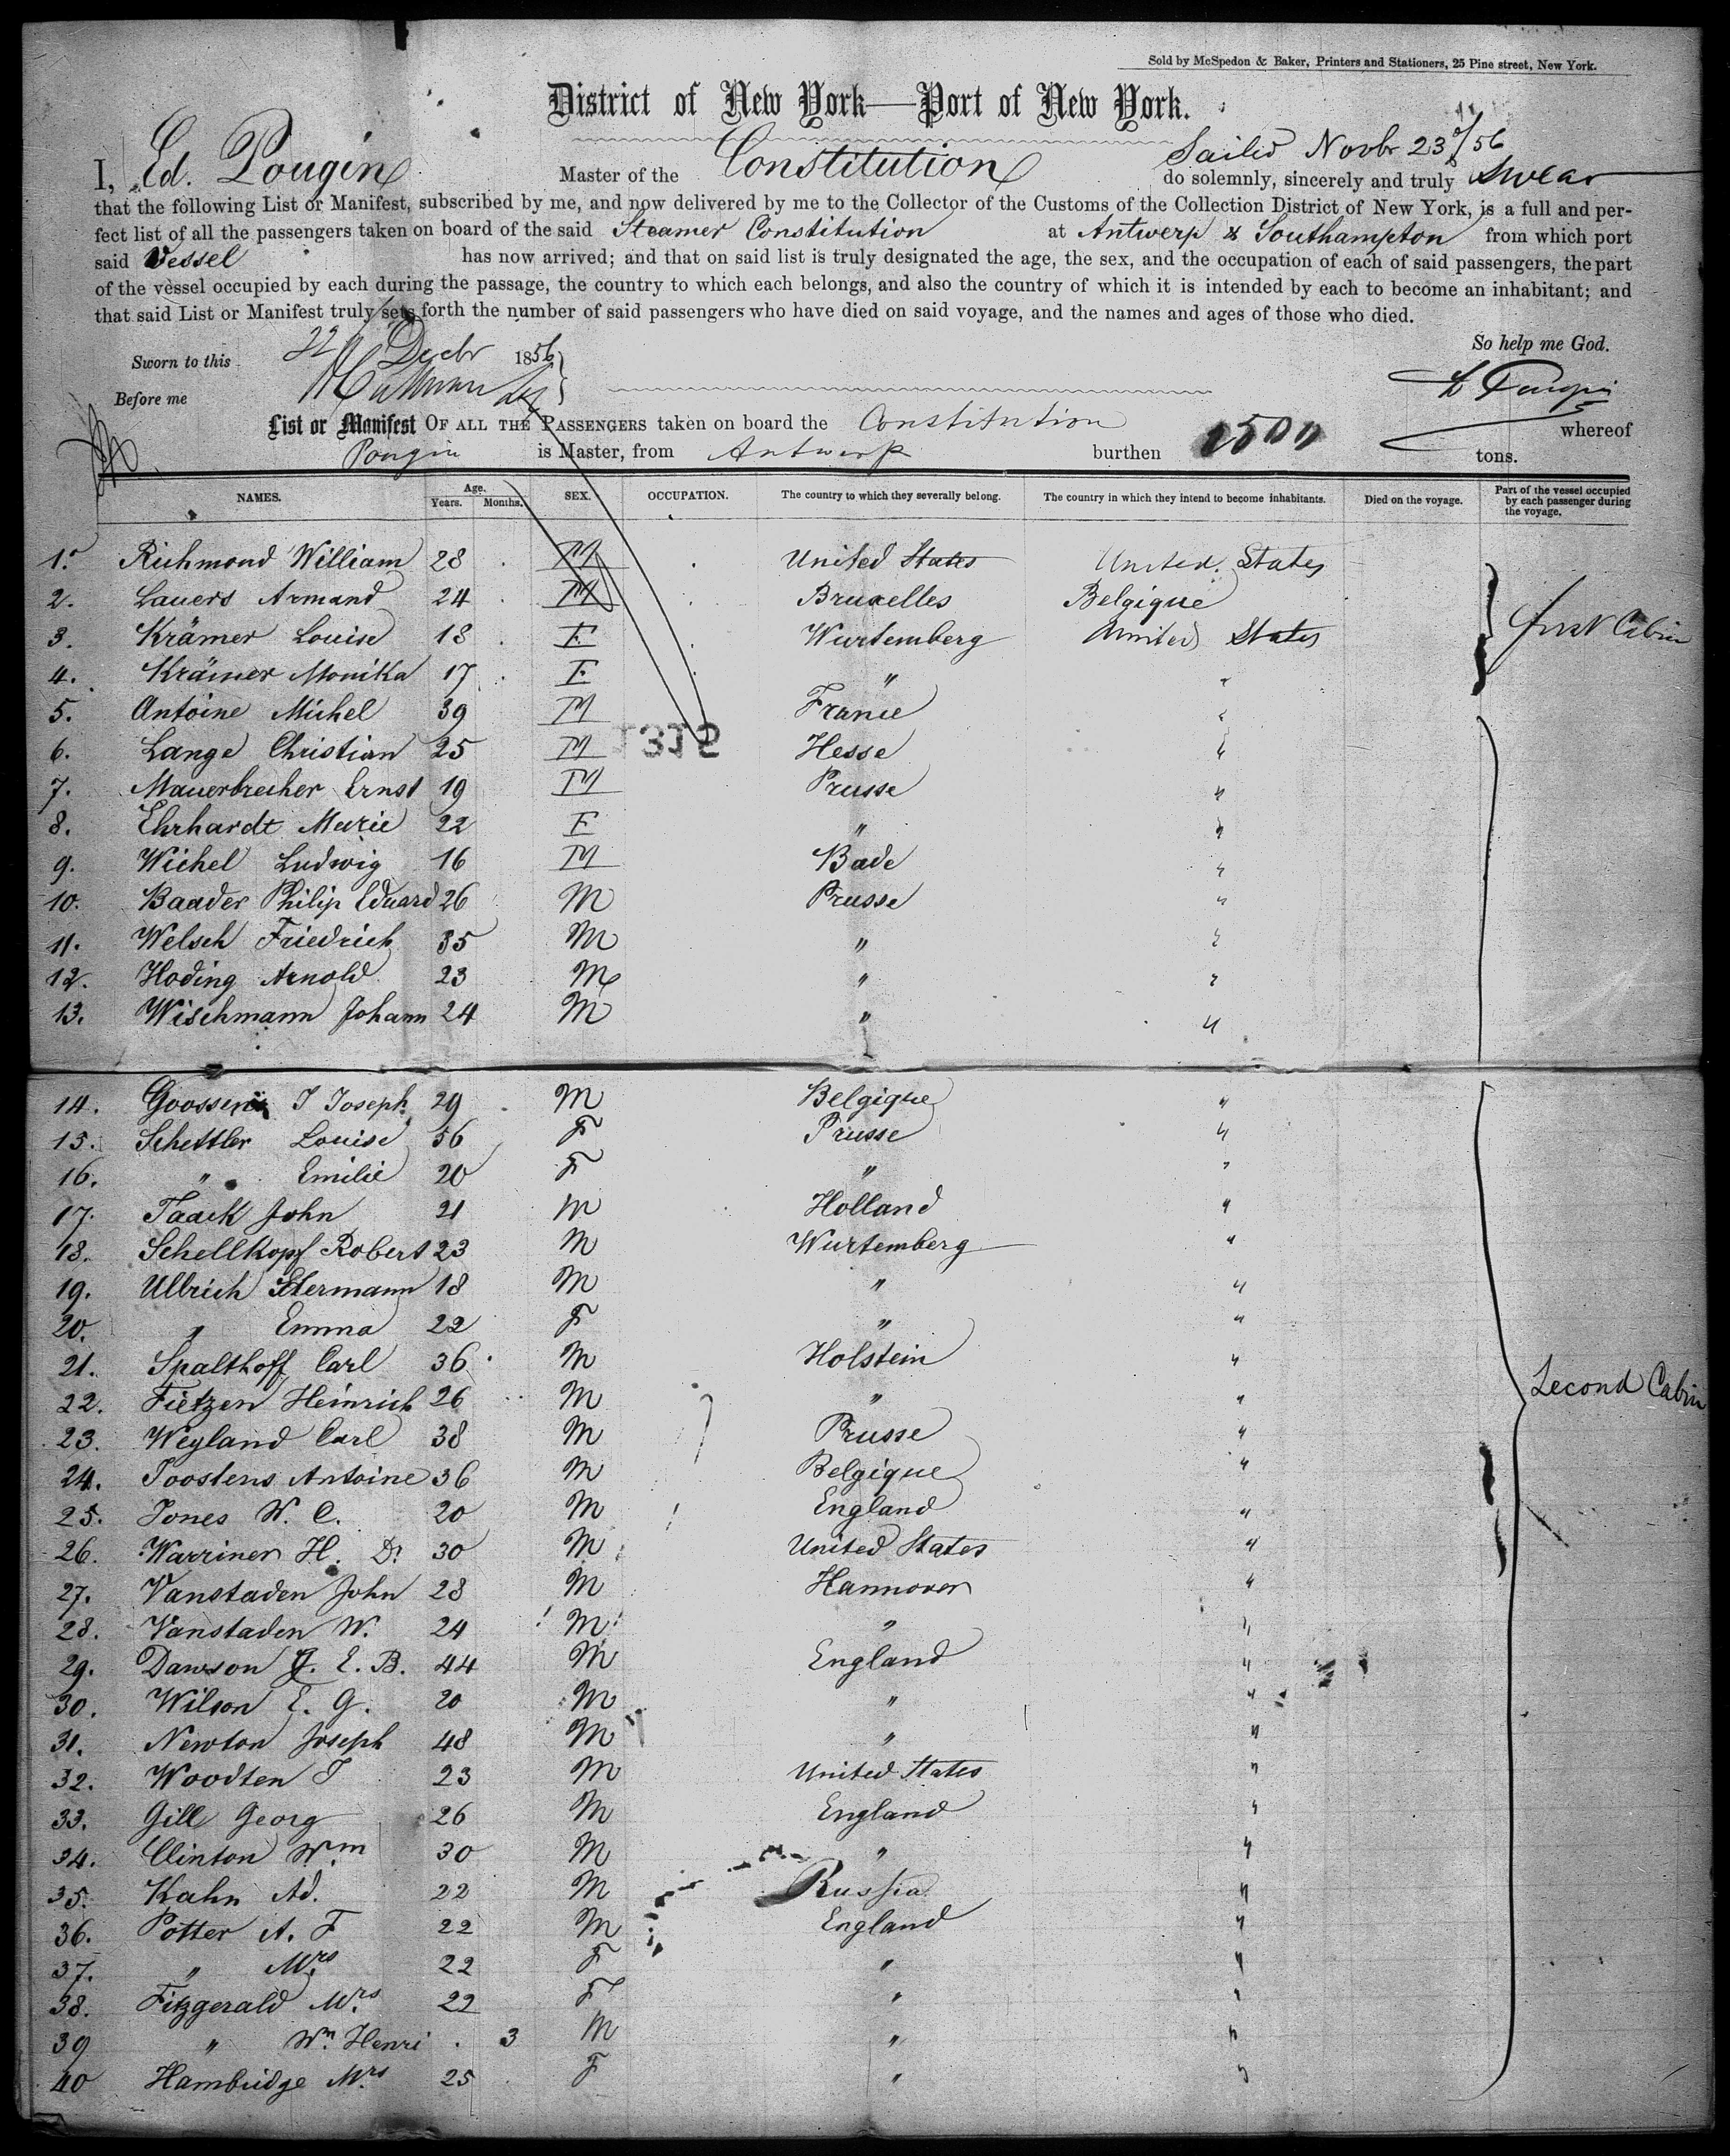 Sold by McSpedon & Baker, Printers and Stationers, 25 Pine street, New York.
District of New York—Port of New York.
Sailed Novbr 23d/56
I, Ed. Pougin Master of the Constitution do solemnly, sincerely and truly Swear
that the following List or Manifest, subscribed by me, and now delivered by me to the Collector of the Customs of the Collection District of New York, is a full and per-
fect list of all the passengers taken on board of the said Steamer Constitution at Antwerp & Southampton from which port
said Vessel has now arrived; and that on said list is truly designated the age, the sex, and the occupation of each of said passengers, the part
of the vessel occupied by each during the passage, the country to which each belongs, and also the country of which it is intended by each to become an inhabitant; and
that said List or Manifest truly sets forth the number of said passengers who have died on said voyage, and the names and ages of those who died.
So help me God.
Sworn to this 22 Decbr 1856
Before me
Pougin
List or Manifest OF ALL THE PASSENGERS taken on board the Constitution whereof
Pougin is Master, from Antwerp burthen 2500 tons.
NAMES. Age. Years. Months. SEX. OCCUPATION. The country to which they severally belong. The country in which they intend to become inhabitants. Died on the voyage. Part of the vessel occupied by each passenger during the voyage.
1. Richmond William 28 M United States United States
2. Lauers Armand 24 M Bruxelles Belgique
first Cabin
3. Krämer Louise 18 F Wurtemberg United States
4. Krämer Monika 17 F " "
5. Antoine Michel 39 M France "
1315
6. Lange Christian 25 M Hesse "
7. Mauerbrecher Ernst 19 M Prusse "
8. Ehrhardt Marie 22 F " "
9. Wichel Ludwig 16 M Bade "
10. Baader Philip Eduard 26 M Prusse "
11. Welsch Friedrich 35 M " "
12. Hoding Arnold 23 M " "
13. Wischmann Johann 24 M " "
14. Goossens J Joseph 29 M Belgique "
15. Schettler Louise 56 F Prusse "
16. " Emilie 20 F " "
17. Taack John 21 M Holland "
18. Schellkopf Robert 23 M Wurtemberg "
19. Ullrich Hermann 18 M " "
20. " Emma 22 F " "
21. Spalthoff Carl 36 M Holstein "
22. Fietzen Heinrich 26 M " "
Second Cabin
23. Weyland Carl 38 M Prusse "
24. Joostens Antoine 36 M Belgique "
25. Jones W. C. 20 M England "
26. Warriner H. Dr 30 M United States "
27. Vanstaden John 28 M Hannover "
28. Vanstaden W. 24 M " "
29. Dawson J. E. B. 44 M England "
30. Wilson E. G. 20 M " "
31. Newton Joseph 48 M " "
32. Woodten T 23 M United States "
33. Gill Georg 26 M England "
34. Clinton Wm 30 M " "
35. Kahn Ad. 22 M Russia "
36. Potter A. F 22 M England "
37. " Mrs 22 F " "
38. Fitzgerald Mrs 22 F " "
39 " Wm Henri 3 M " "
40 Hambidge Mrs 25 F " "